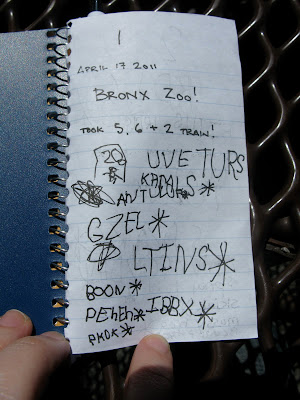 1
APRIL 17 2011
BRONX ZOO!
TOOK 5, 6 + 2 TRAIN!
20 UVETURS
KAMLS*
GZEL*
LTINS*
BOON*
IBBX*
PKOK*